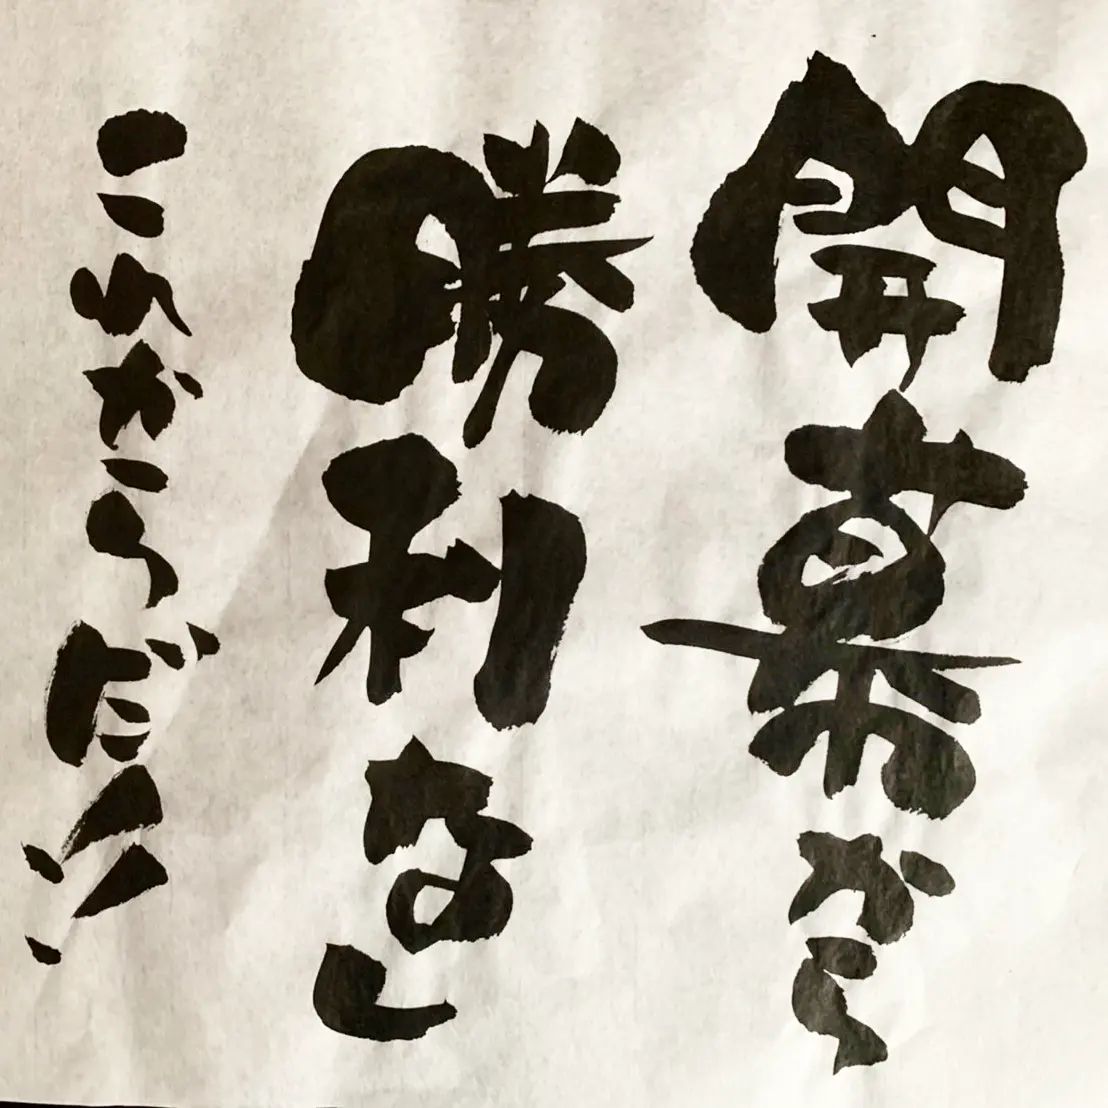 開幕から
勝利なし
これからだ!!